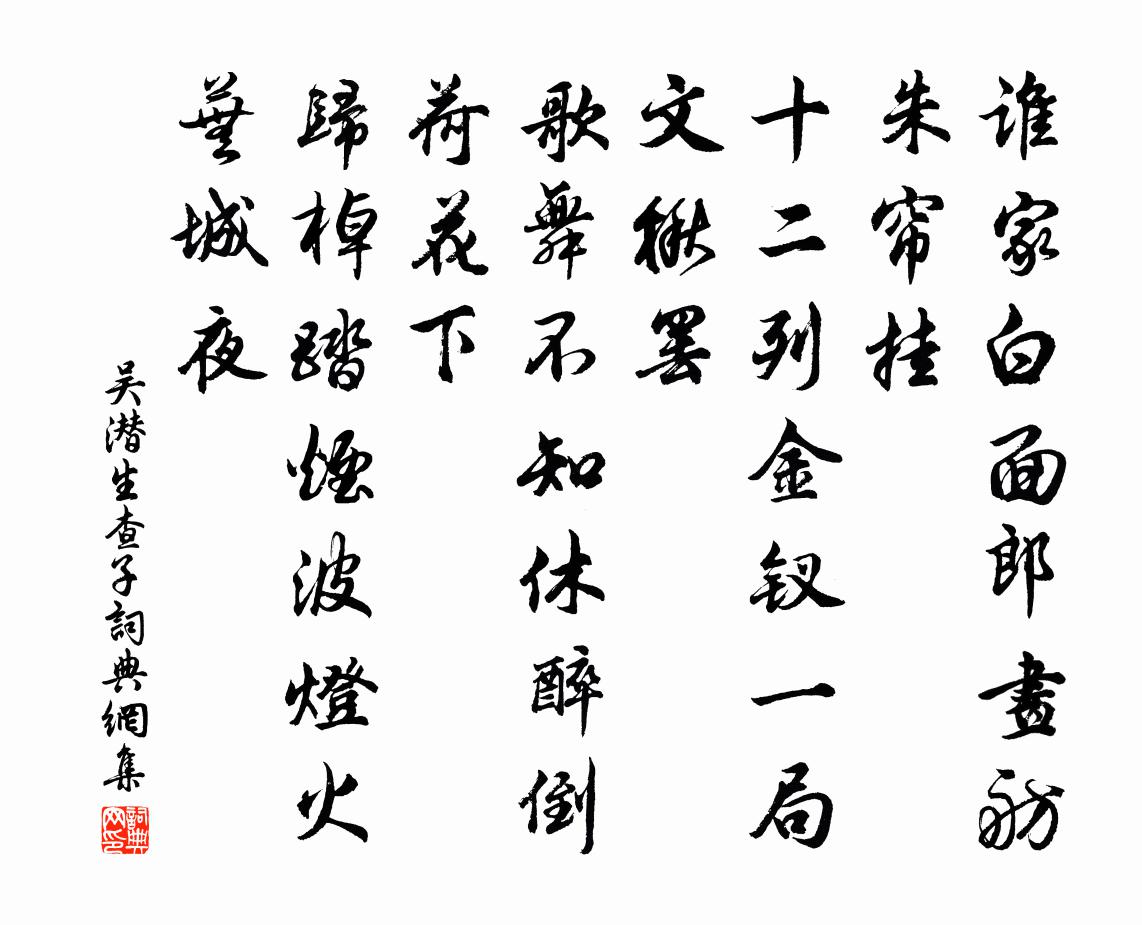 谁家白面郎畫舫
朱帘挂
十二列金钗一局
文楸罢
歌舞不知休醉倒
荷花下
歸棹踏煙波燈火
蕪城夜
吴潜生查子詞典網集
詞典网印